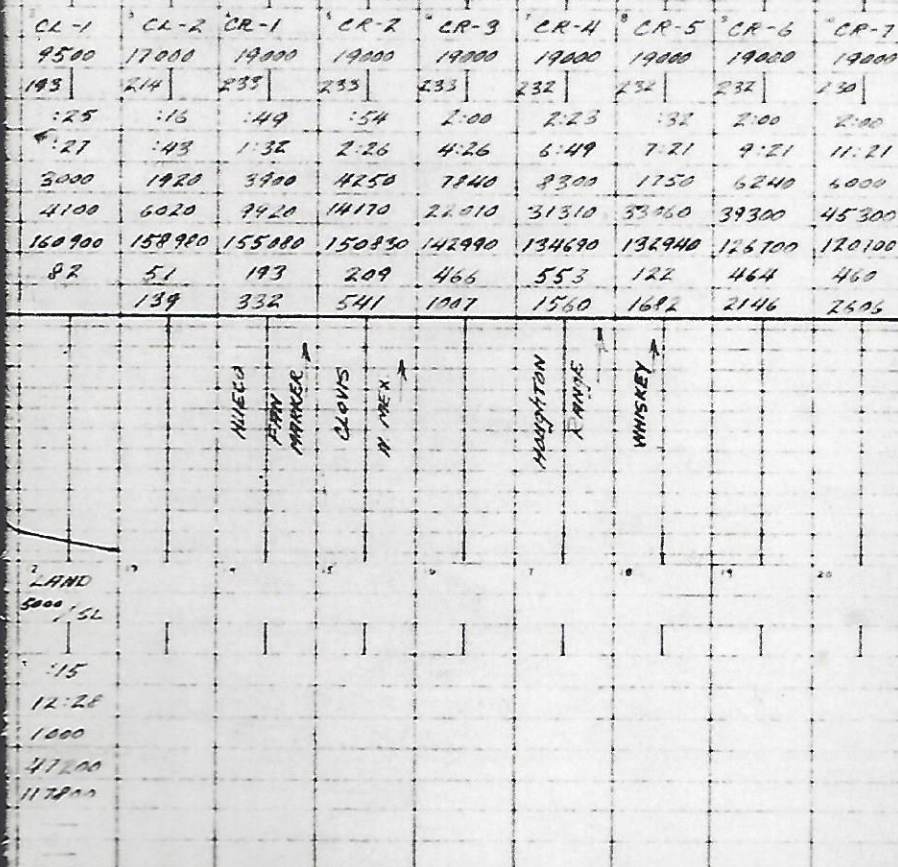 CL-1 CL-2 CR-1 CR-2 CR-3 CR-4 CR-5 CR-6 CR-7
9500 17000 19000 19000 19000 19000 19000 19000 19000
193 214 233 233 233 232 232 232 230
:25 :16 :49 :54 2:00 2:23 :32 2:00 2:00
:27 :43 1:32 2:26 4:26 6:49 7:21 9:21 11:21
3000 1920 3900 4250 7840 8300 1750 6240 6000
4100 6020 9920 14170 22010 31310 33060 39300 45300
160900 158980 155080 150830 142990 134690 132940 126700 120700
82 51 193 209 466 553 122 464 460
139 332 541 1007 1560 1682 2146 2606
HUECO
FAN
MARKER
CLOVIS
N MEX.
RANGE
WHISKEY
18 19 20
LAND
5000/SL
:15
12:28
1000
47200
117800